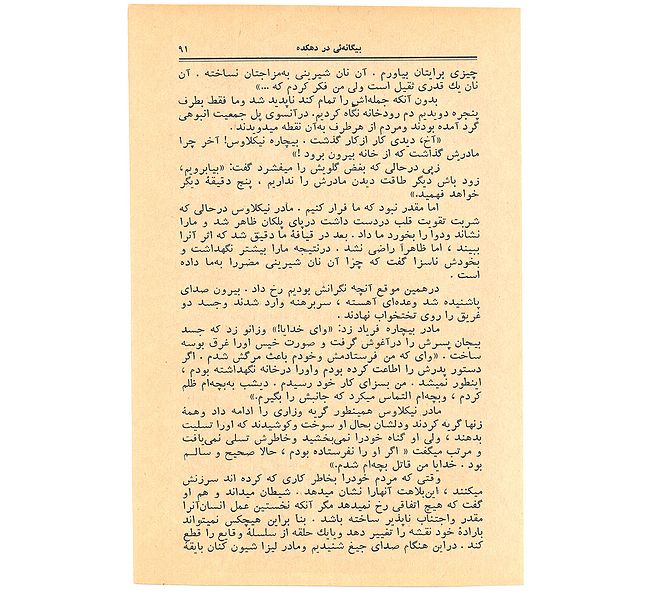 بیگانه‌ئی در دهکده
۹۱
چیزی برایتان بیاورم . آن نان شیرینی به‌مزاجتان نساخته . آن
نان یك قدری ثقیل است ولی من فکر کردم که ...»
بدون آنکه جمله‌اش را تمام کند ناپدید شد وما فقط بطرف
پنجره دویدیم دم رودخانه نگاه کردیم. درآنسوی پل جمعیت انبوهی
گرد آمده بودند ومردم از هرطرف به‌آن نقطه میدویدند .
«آخ، دیدی کار ازکار گذشت . بیچاره نیکلاوس! آخر چرا
مادرش گذاشت که از خانه بیرون برود !»
زپی درحالی که بغض گلویش را میفشرد گفت: «بیابرویم،
زود باش دیگر طاقت دیدن مادرش را نداریم ، پنج دقیقهٔ دیگر
خواهد فهمید.»
اما مقدر نبود که ما فرار کنیم . مادر نیکلاوس درحالی که
شربت تقویت قلب دردست داشت درپای پلکان ظاهر شد و مارا
نشاند ودوا را بخورد ما داد . بعد در قیافهٔ ما دقیق شد که اثر آنرا
ببیند ، اما ظاهراً راضی نشد . درنتیجه مارا بیشتر نگهداشت و
بخودش ناسزا گفت که چرا آن نان شیرینی مضررا به‌ما داده
است .
درهمین موقع آنچه نگرانش بودیم رخ داد . بیرون صدای
پاشنیده شد وعده‌ای آهسته ، سربرهنه وارد شدند وجسد دو
غریق را روی تختخواب نهادند .
مادر بیچاره فریاد زد: «وای خدایا!» وزانو زد که جسد
بیجان پسرش را درآغوش گرفت و صورت خیس اورا غرق بوسه
ساخت . «وای که من فرستادمش وخودم باعث مرگش شدم . اگر
دستور پدرش را اطاعت کرده بودم واورا درخانه نگهداشته بودم ،
اینطور نمیشد . من بسزای کار خود رسیدم . دیشب به‌بچه‌ام ظلم
کردم ، وبچه‌ام التماس میکرد که جانبش را بگیرم.»
مادر نیکلاوس همینطور گریه وزاری را ادامه داد وهمهٔ
زنها گریه کردند ودلشان بحال او سوخت وکوشیدند که اورا تسلیت
بدهند ، ولی او گناه خودرا نمی‌بخشید وخاطرش تسلی نمی‌یافت
و مرتب میگفت « اگر او را نفرستاده بودم ، حالا صحیح و سالـم
بود . خدایا من قاتل بچه‌ام شدم.»
وقتی که مردم خودرا بخاطر کاری که کرده اند سرزنش
میکنند ، این‌بلاهت آنهارا نشان میدهد . شیطان میداند و هم او
گفت که هیچ اتفاقی رخ نمیدهد مگر آنکه نخستین عمل انسان‌آنرا
مقدر واجتناب ناپذیر ساخته باشد . بنا براین هیچکس نمیتواند
بارادهٔ خود نقشه را تغییر دهد ویایك حلقه از سلسلهٔ وقایع را قطع
کند . دراین هنگام صدای جیغ شنیدیم ومادر لیزا شیون کنان بایقهٔ